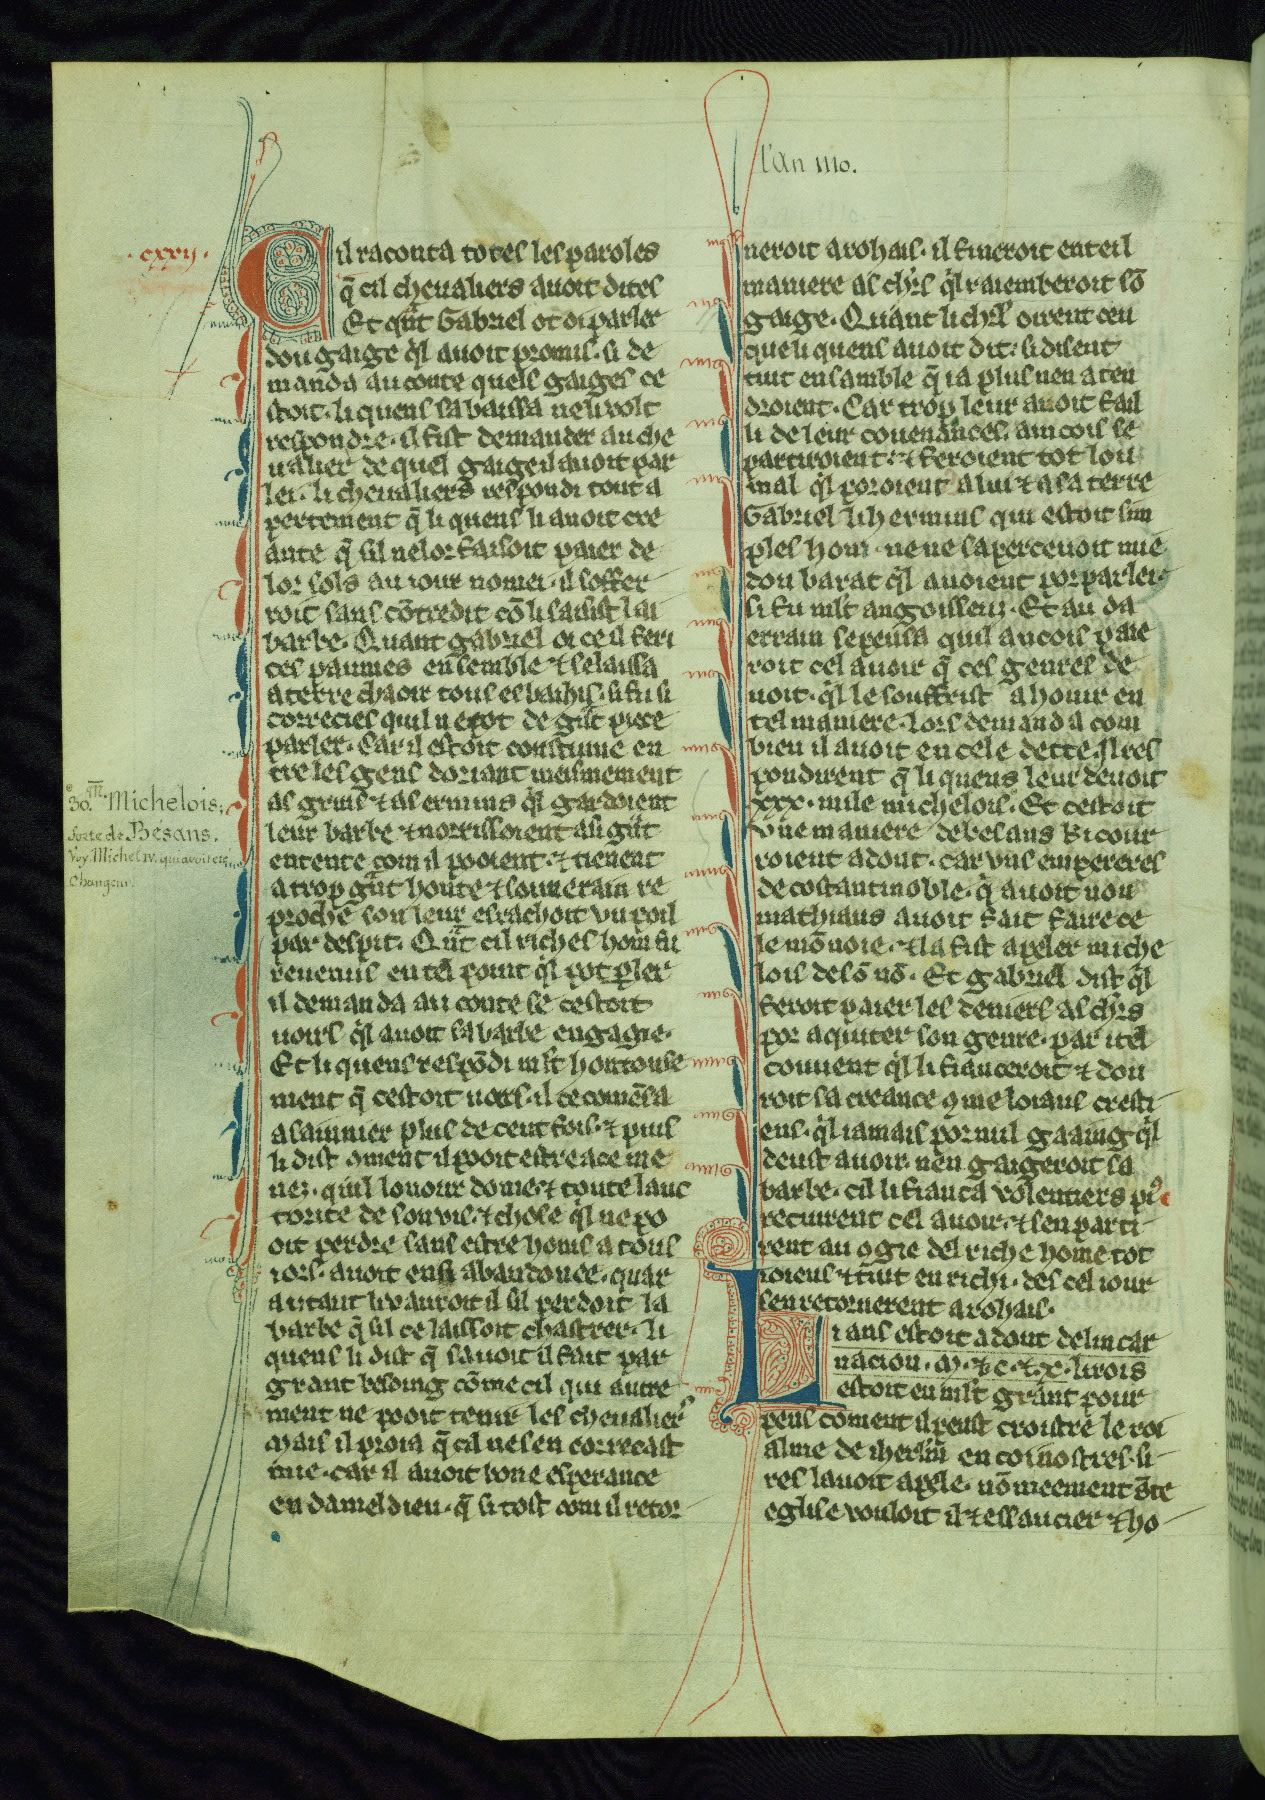 l'an 1110.
.cxxij.
Cil raconta totes les paroles
q̄ cil cheualiers auoit dites
Et qn̄t Gabriel ot oi parler
dou gaige ql auoit promis. si de
manda au conte quels gaiges ce
stoit. li quens sa baissa ne li volt
respondre. il fist demander au che
ualier de quel gaige il auoit par
lei. li cheualiers respondi tout a
pertement q̄ li quens li auoit cre
ante q̄ sil ne lor faisoit paier de
lor sols au iour nomei. il soffer
roit sans cōtredit cō li saisist lai
barbe. Quant gabriel oi ce il feri
ces paumes ensemble & se laissa
a terre chaoir tous esbahis. si fu si
correcies quil ne pot de gn̄t piece
parler. Car il estoit constume en
tre les gens doriant meismement
as grius & as ermins ql gardoient
leur barbe & norrissoient a si gn̄t
entente com il pooient. & tienent
a trop gn̄t honte & souuerain re
proche son leur esrachoit vn poil
par despit. Qn̄t cil riches hom fu
reuenus en tel point ql pot pler
il demanda au conte se cestoit
uoirs ql auoit sa barbe engagie.
Et li quens respōdi mlt hontouse
ment q̄ cestoit uoirs. il cecomēsa
a sainnier plus de cent fois. & puis
li dist ꝯment il pooit estre a ce me
nez. quil lonour dome & toute lauc
torite de son vis. & chose ql ne po
oit perdre sans estre honis a tous
iors. auoit ensi abandonee. quar
autant li vauroit il sil perdoit la
barbe q̄ sil ce laissoit chastrer. li
quens li dist q̄ sauoit il fait par
grant besoing cōme cil qui autre
ment ne pooit tenir les cheualiers
Mais il proia q̄ cil ne sen correcast
mie. car il auoit bone esperance
en dameldieu. q̄ si tost com il retor
30.m Michelois,
sorte de Besans.
Voy. Michel IV. qui avoit été
Changeur.
neroit a rohais. il fineroit en teil
maniere as chrs ql raiemberoit sō
gaige. Quant li chrs oirent ceu
que li quens auoit dit. si disent
tuit ensamble q̄ ia plus nen aten
droient. Car trop leur auoit fail
li de leur couenances. aincois se
partiroient. & feroient tot lou
mal ql poroient a lui & a sa terre
Gabriel li hermins qui estoit sim
ples hom ne ne sapercevoit mie
dou barat ql auoient porparlei.
si fu mlt angoisseus. Et au da
errain se pensa quil ancois paie
roit cel auoir q̄ ces genres de
uoit. ql le souffrist a honir en
tel maniere. lors demanda com
bien il auoit en cele dette. Il res
pondirent q̄ li quens leur deuoit
xxx. mile michelois. Et cestoit
vne maniere de besans ki cour
roient adont. car vns empereres
de costantinoble. q̄ auoit non
mathiaus auoit fait faire ce
le mōnoie. & la fist apeler miche
lois de sō nō. Et gabriel dist ql
feroit paier les deniers as chrs
por aquiter son genre. par itel
conuent ql li fianceroit & don
roit sa creance ꝯme loiaus cresti
ens. ql iamais por nul gaaing ql
deust auoir. nen gaigeroit sa
barbe. cil li fianca volentiers
recuirent cel auoir & sen parti
rent au ꝯgie del riche home tot
ioieus & tuit enrichi. des cel iour
sen retornerent a rohais.
Li ans estoit adont de lincar
nacion. M. & c. & x. li rois
estoit en mlt grant pour
pens coment il peust croistre le roi
alme de iherlm en coi nostres si
res lauoit apele. nōmeement ste
eglise vouloit il & essaucier & ho